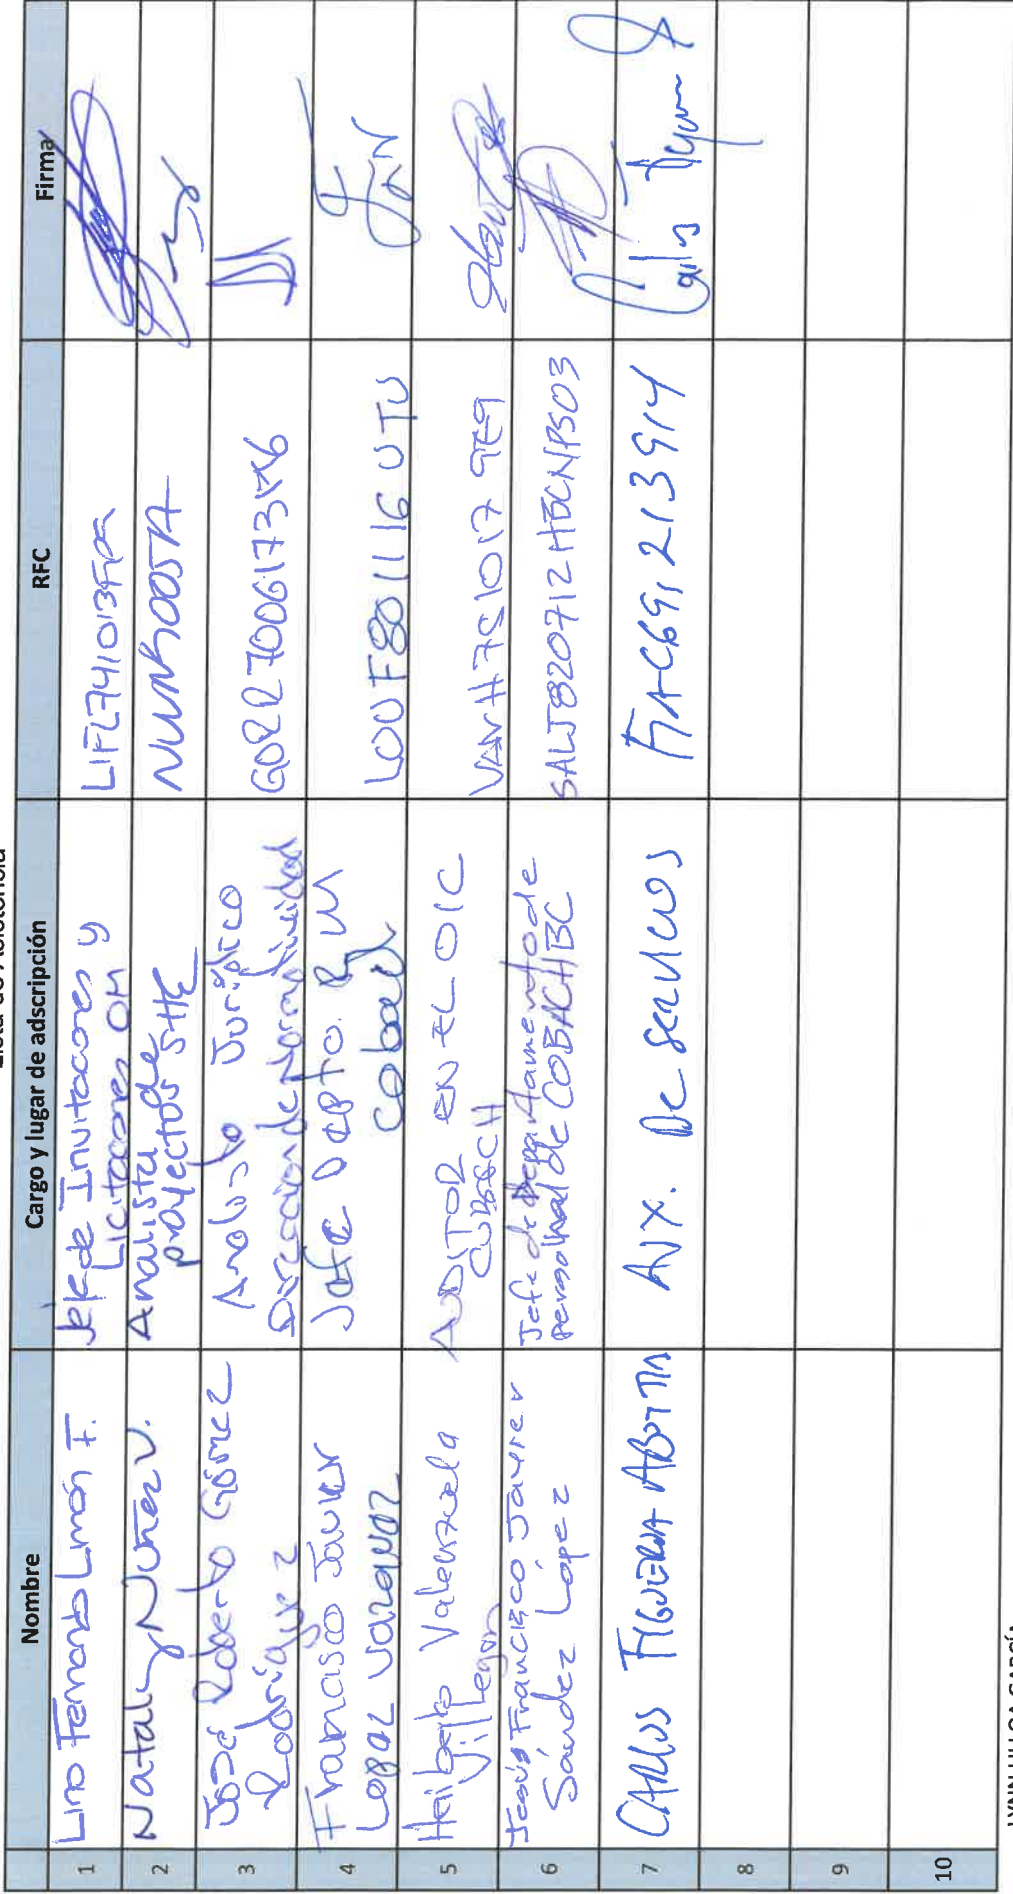 Lista de Asistencia
Nombre Cargo y lugar de adscripción RFC Firma
1 Lino Fernando Limón F. Jefe de Invitaciones y
Licitaciones OM LIFL741013
2 Nataly Nuñez V. Analista de
proyectos SHE
3 José Roberto Gómez
Rodríguez Analista Jurídico
Dirección de Normatividad GORR700617
4 Francisco Javier
Lopez Vazquez Jefe Depto. RyM
Cobach LOVF801116UTU
5 Heriberto Valenzuela
Villegas AUDITOR EN EL OIC
COBACH VAVH7510179E9
6 Jesús Francisco Javier
Sández López Jefe de Departamento de
personal de COBACHBC SALJ820712HBCNPS03
7 CARLOS FIGUEROA AUX. DE SERVICIOS
8
9
10
LYNN ULLOA GARCÍA